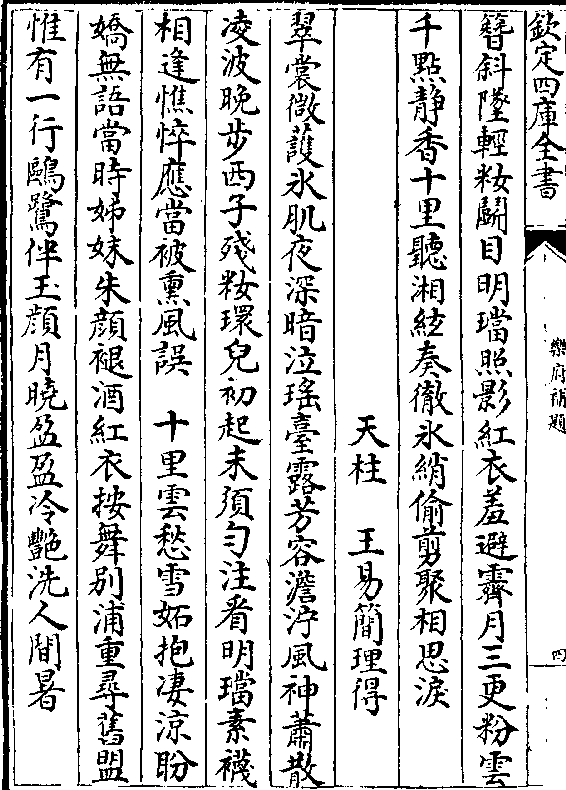 欽定四庫全書
樂府補題
四
簪斜墜輕粧鬭目明璫照影紅衣羞避霽月三更粉雲
千點静香十里聽湘絃奏徹氷綃偷剪聚相思淚
天柱　王易簡理得
翠裳微護氷肌夜深暗泣瑶臺露芳容澹泞風神蕭散
凌波晚步西子殘粧環兒初起未須匀注看明璫素襪
相逢憔悴應當被熏風誤　十里雲愁雪妬抱凄凉盼
嬌無語當時姊妹朱顔褪酒紅衣按舞别浦重尋舊盟
惟有一行鷗鷺伴玉顔月曉盈盈冷艷洗人間暑